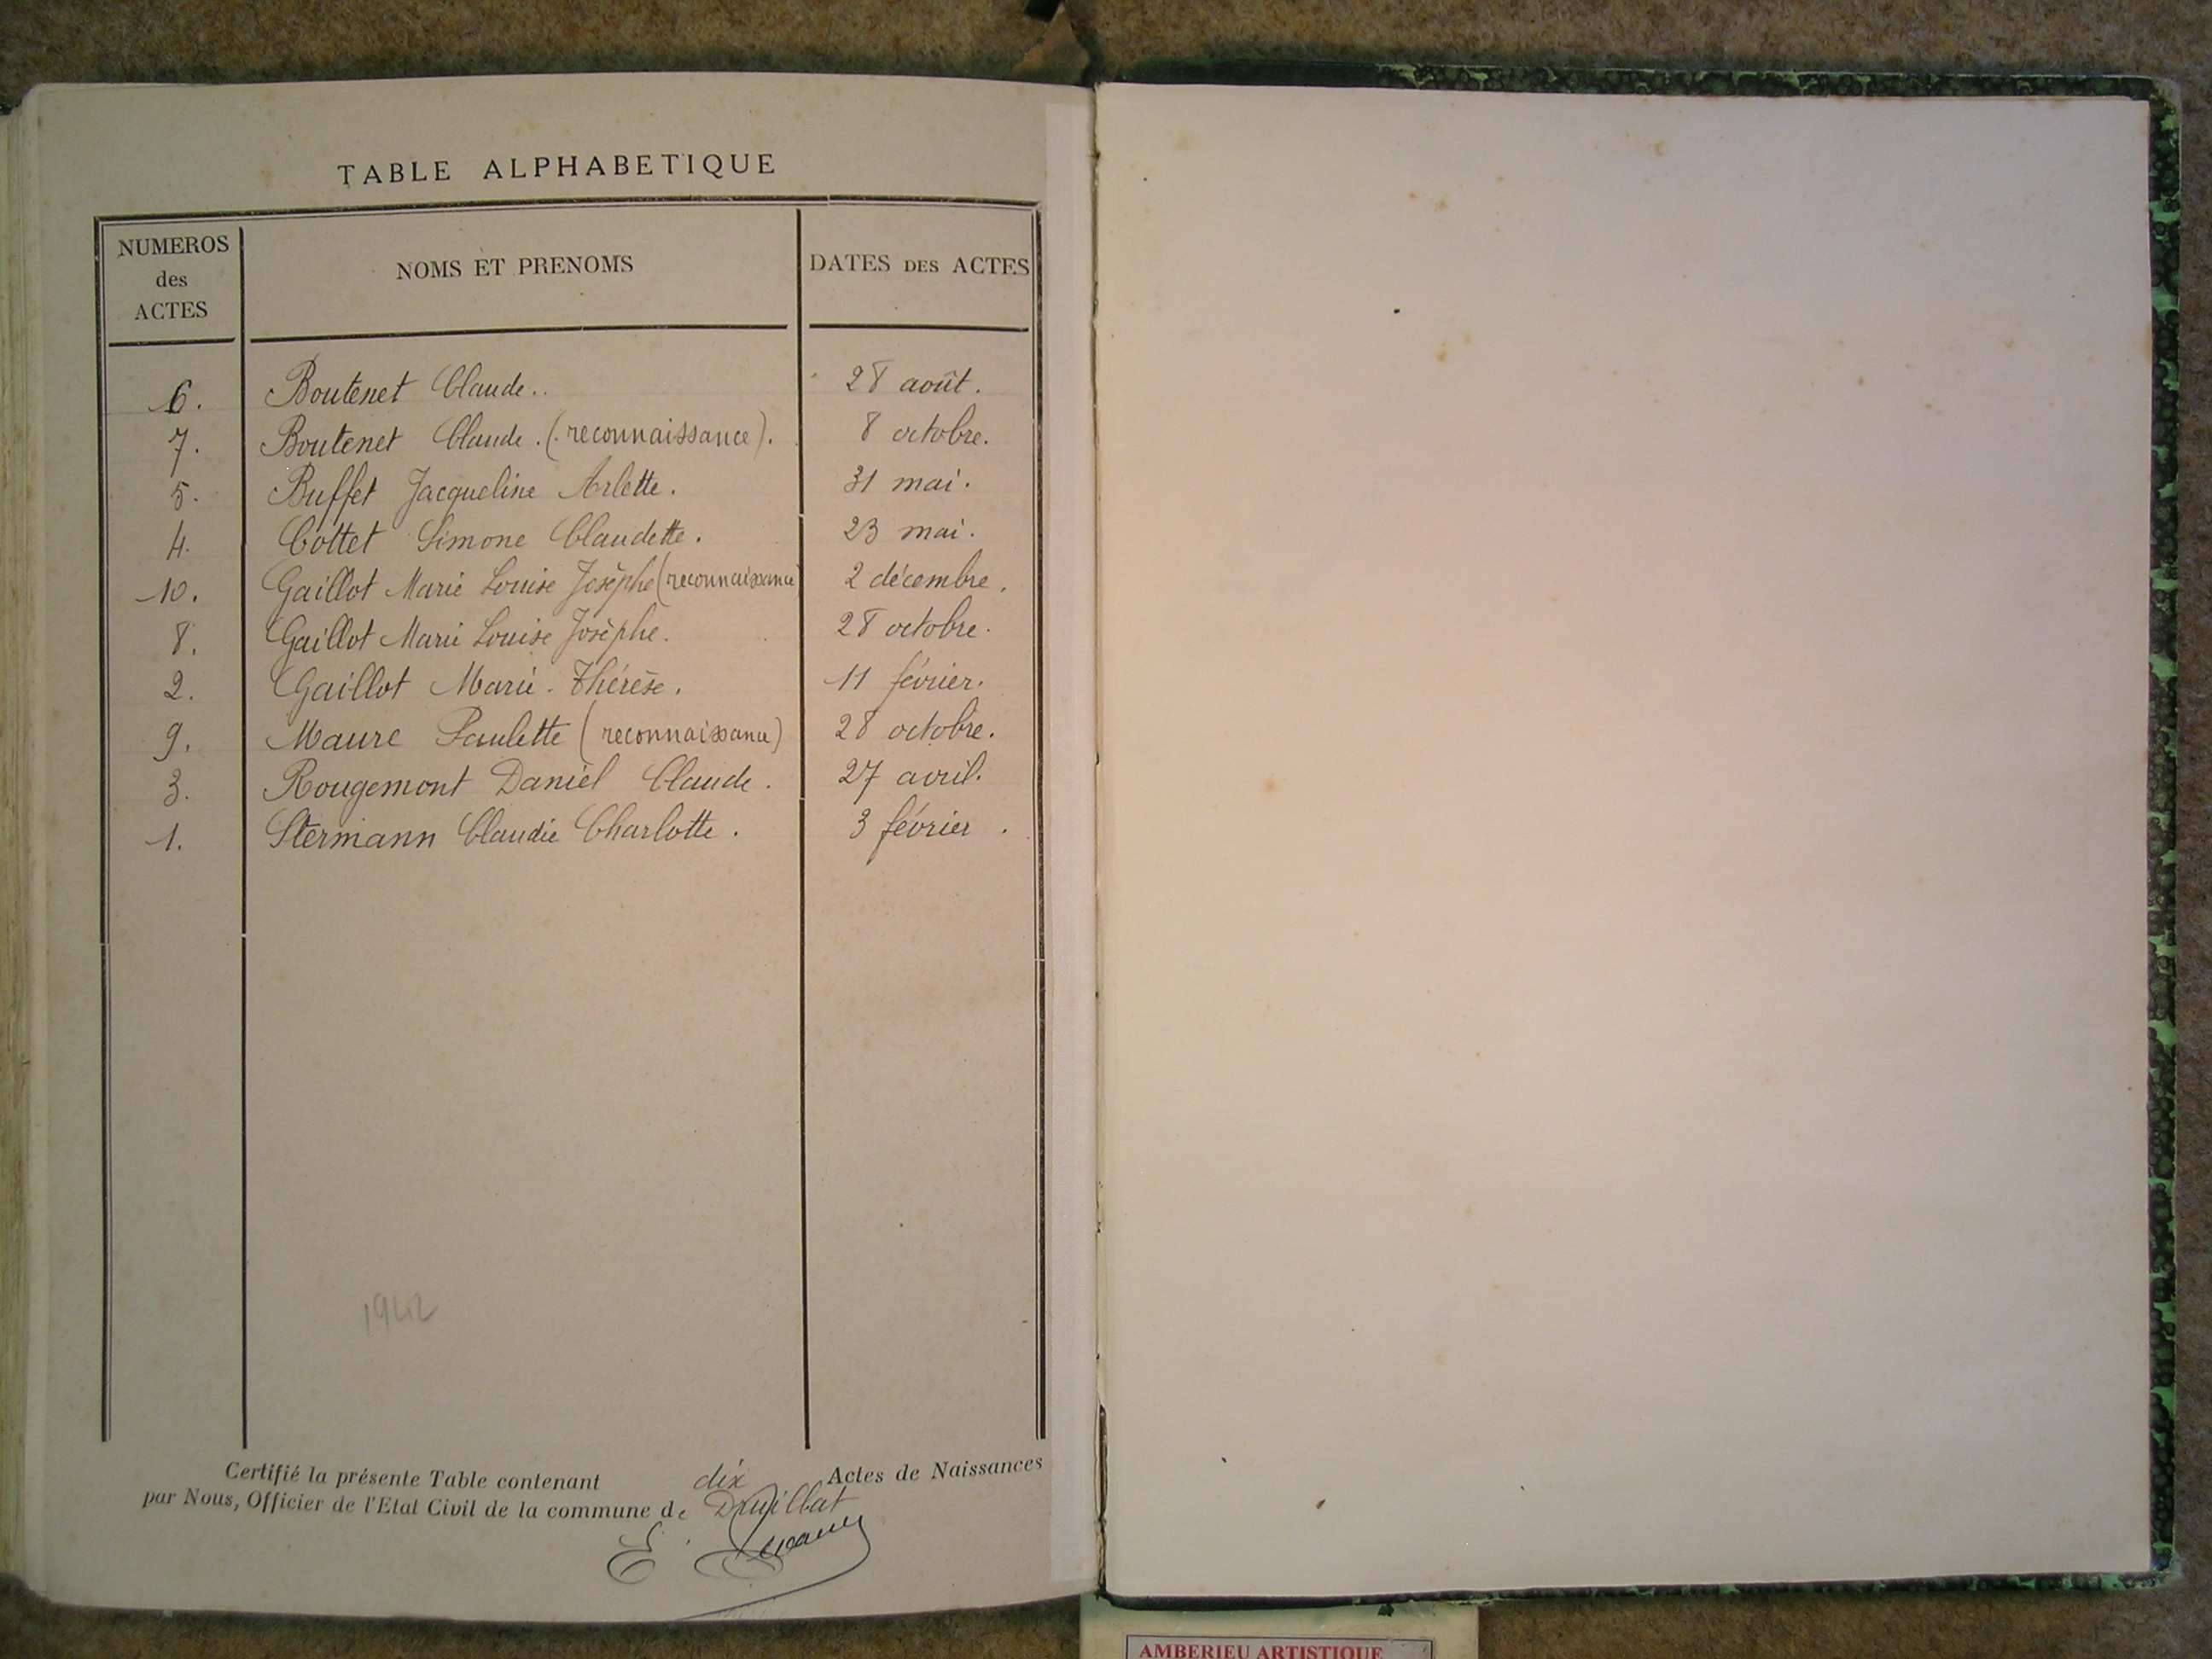 TABLE ALPHABETIQUE
NUMEROS des ACTES NOMS ET PRENOMS DATES DES ACTES
6. Boutenet Claude.. 28 août.
7. Boutenet Claude. (reconnaissance). 8 octobre.
5. Buffet Jacqueline Arlette. 31 mai.
4. Cottet Simone Claudette. 23 mai.
10. Gaillot Marie Louise Josèphe (reconnaissance) 2 décembre.
8. Gaillot Marie Louise Josèphe. 28 octobre.
2. Gaillot Marie-Thérèse. 11 février.
9. Maure Paulette (reconnaissance) 28 octobre.
3. Rougemont Daniel Claude. 27 avril.
1. Stermann Claudie Charlotte. 3 février.
1942
Certifié la présente Table contenant dix Actes de Naissances
par Nous, Officier de l'Etat Civil de la commune de Druillat
E.
AMBERIEU ARTISTIQUE